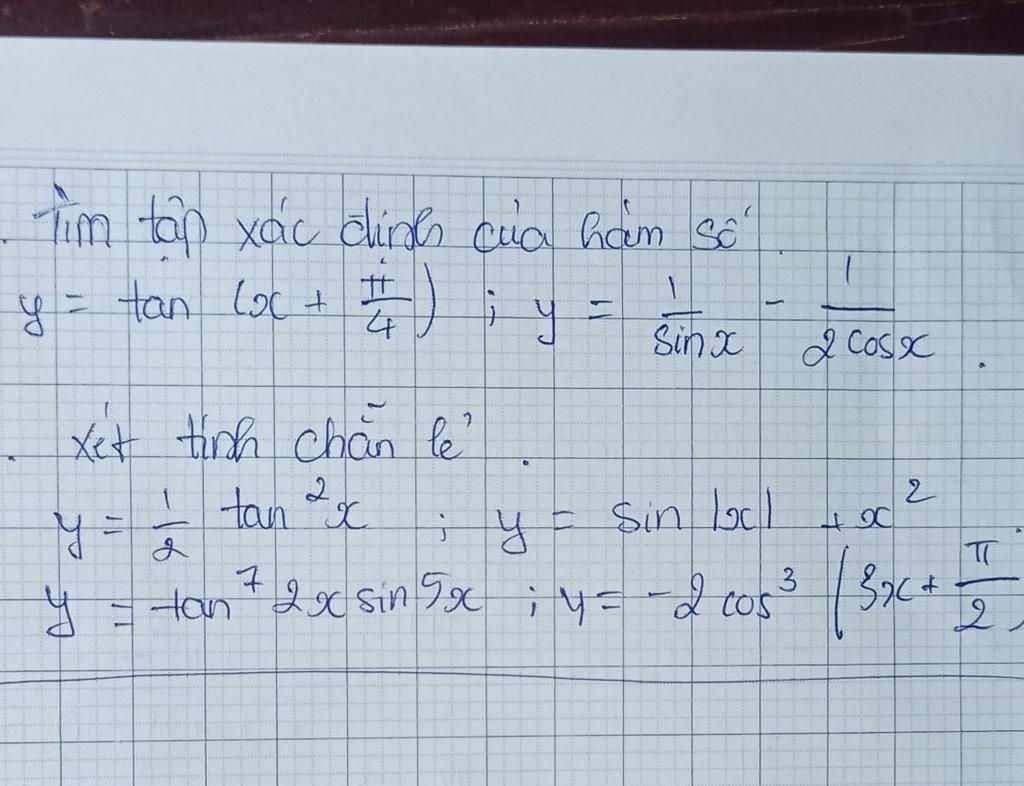 . Tìm tập xác định của hàm số.
y = tan (x + π/4) ; y = 1/sinx - 1/2cosx .
. Xét tính chẵn lẻ .
y = 1/2 tan²x ; y = sin |x| + x² .
y = tan⁷ 2x sin5x ; y = -2 cos³ (3x + π/2)